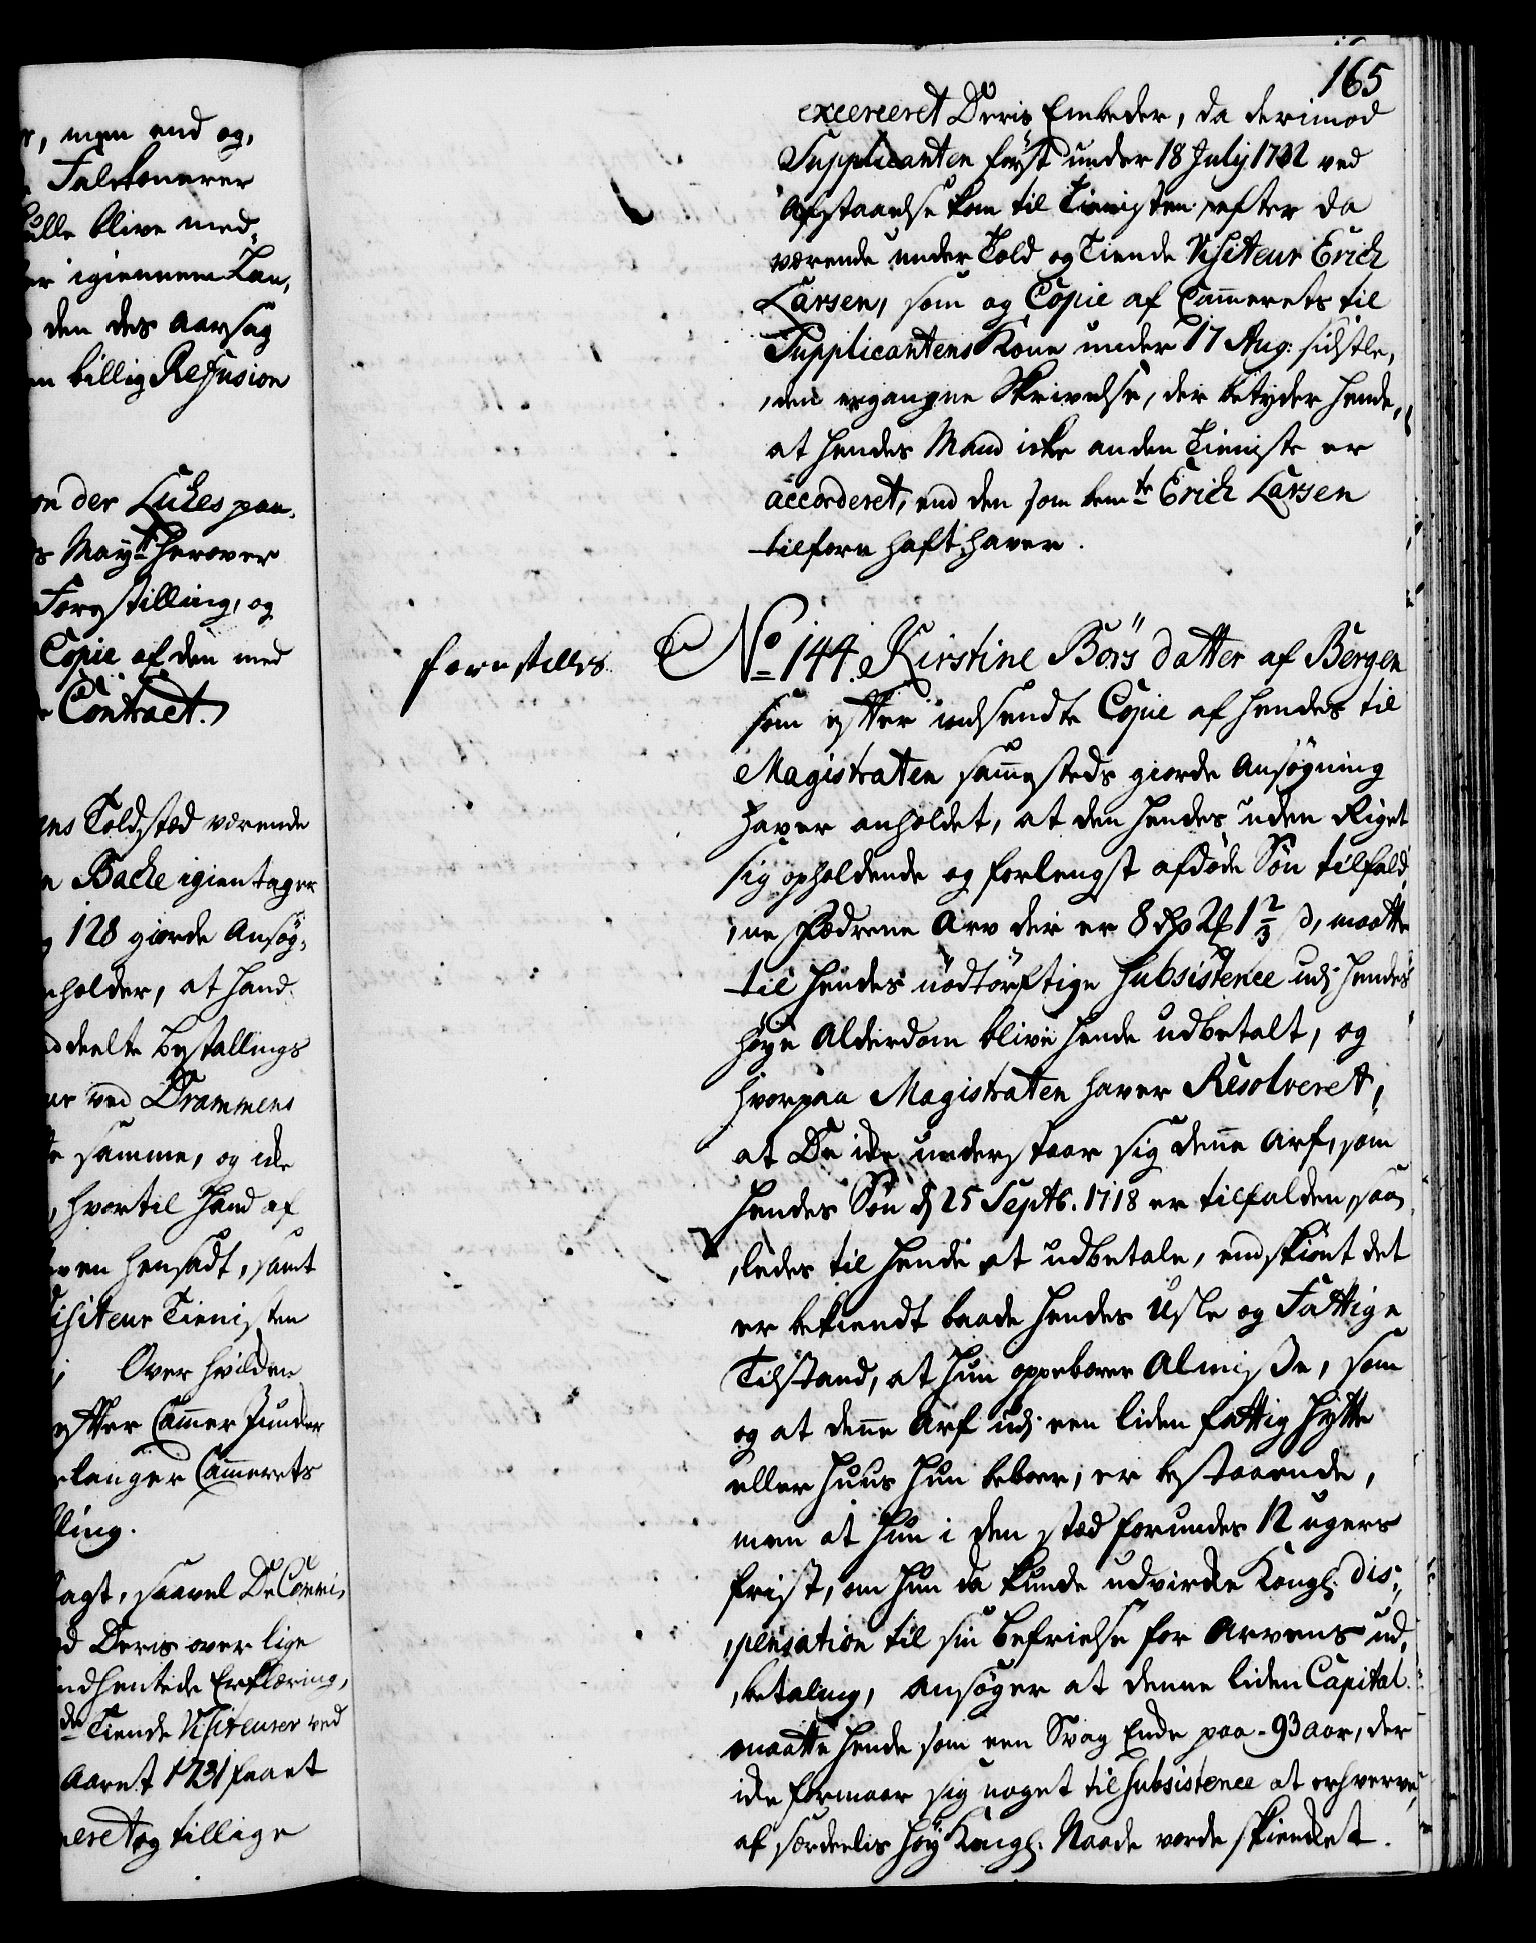 r, men end og,
Falckonerer
ulle blive med,
er igiennem Lan,
den des aarsag
en billig Refusion
on der Lühes paa,
s Mayts herover
Forestilling, og
Copie af den med
Contract.
ens Toldsted værende
n Bache igientager
g 128 giorde Ansøg,
nholder, at hand
ddeelte Bestallings
ur ved Drammens
e samme, og icke
, hvortil Hand af
ven hensadt, samt
isiteur Tienisten
Over hvilcken
efter Cammer Juncker
rlanger Cammerets
lling.
lagt, saavel De Commi,
ed Deris over lige
indhentede Erklæring,
de Tiende Visiteurer ved
Aaret 1731 faaet
neret og tillige
165
excerceret Deris Embeder, da derimod
Supplicanten først under 18 July 1732 ved
Afstaaelse kom til Tienisten efter da
værende under Told og Tiende Visiteur Erich
Larsen, som og Copie af Cammerets til
Supplicantens Kone under 17 Aug: sidstle,
,den ergangne Skrivelse, der betyder hende,
at hendes Mand icke anden Tieniste er
accorderet, end den som bemte Erich Larsen
tilforn haft haver.
forestilles.
No 144. Kirstine Børs datter af Bergen
som efter indsendte Copie af hendes til
Magistraten sammesteds giorde Ansøgning
haver anholdet, at den hendes uden Riget
sig opholdende og forlengst afdøde Søn tilfald,
,ne Fædrene Arv der er 8 rdr 2 ß 1 2/3 d, maatte
til hendes nødtørftige Subsistence udj hendes
høye Alderdom blive hende udbetalt, og
hvorpaa Magistraten haver Resolveret,
at De icke understaar sig denne Arf, som
hendes Søn d 25 Septb. 1718 er tilfalden, saa,
,ledes til hende at udbetale, endskiønt det
er bekiendt baade hendes Usle og Fattige
Tilstand, at hun oppebærer Almisse, som
og at denne Arf udj een liden fattig hytte
eller Huus hun beboer, er bestaaende,
men at hun i den sted forundes 12 ugers
frist, om hun da kunde udvircke Kongl. dis,
,pensation til sin befrielse for Arvens ud,
,betaling, Ansøger at denne liden Capital
maatte hende som een Svag Encke paa 93 aar, der
icke formaar sig noget til Subsistence at erhverve,
af særdeelis høy Kongl. Naade vorde skiencket.